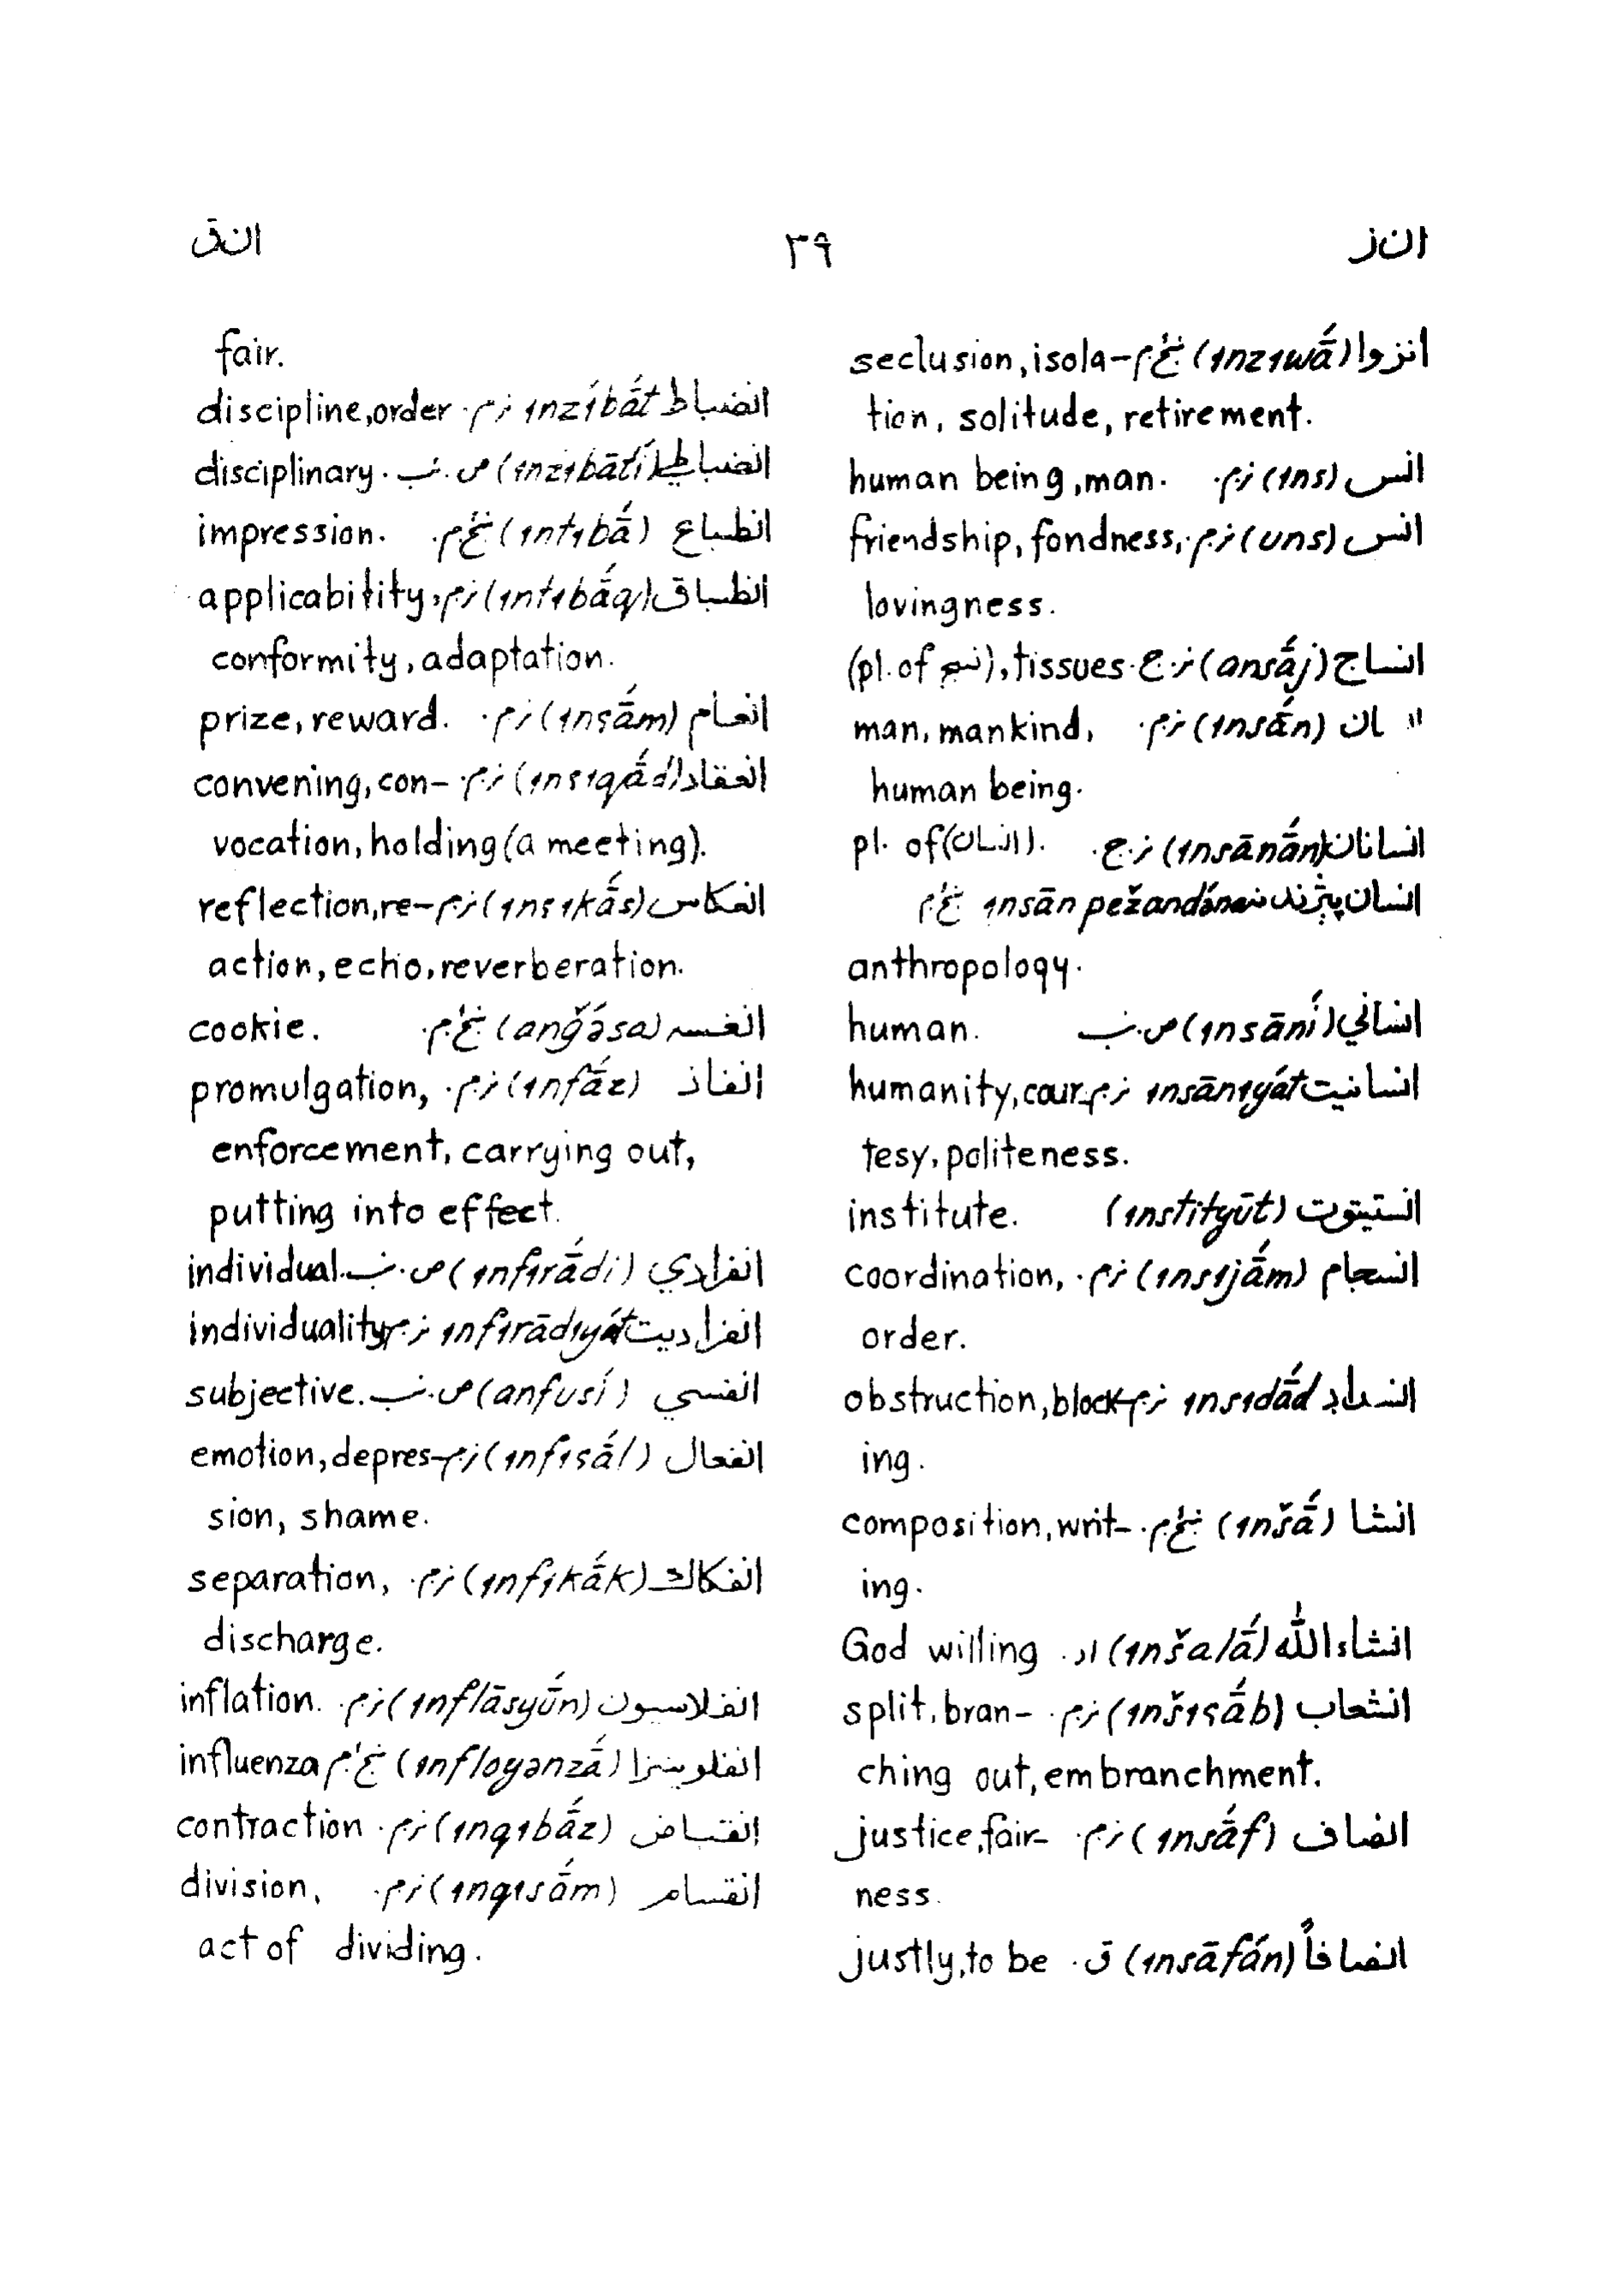 انز ۳۹ انق
انزوا (ınzıwā́) ښځ٠م seclusion, isola-
tion, solitude, retirement.
انس (ıns) نر٠م. human being, man.
انس (uns) نر٠م. friendship, fondness,
lovingness.
انساج (ansā́j) نر٠ج (pl. of نسج), tissues.
ان (ınsā́n) نر٠م. man, mankind,
human being.
انسانان (ınsānā́n) نر٠ج. pl. of (انسان).
انسان پېژندنه ınsān pežandə́na ښځ٠م
anthropology.
انساني (ınsāní) ص.نب human.
انسانيت ınsānıyát نر٠م humanity, cour-
tesy, politeness.
انستيتوت (ınstityūt) institute.
انسجام (ınsıjā́m) نر٠م. coordination,
order.
انسداد ınsıdā́d نر٠م obstruction, block-
ing.
انشا (ınšā́) ښځ٠م. composition, writ-
ing.
انشاءالله (ınšalā́) اد. God willing
انشعاب (ınšıʕā́b) نر٠م. split, bran-
ching out, embranchment.
انصاف (ınsā́f) نر٠م. justice, fair-
ness.
انصافاً (ınsāfán) ق. justly, to be
fair.
انضباط ınzíbā́t نر٠م. discipline, order
انضباطي (ınzıbātí) ص.نب. disciplinary.
انطباع (ıntıbā́) ښځ٠م. impression.
انطباق (ıntıbā́q) نر٠م applicability,
conformity, adaptation.
انعام (ınʕā́m) نر٠م. prize, reward.
انعقاد (ınʕıqā́d) نر٠م. convening, con-
vocation, holding (a meeting).
انعكاس (ınʕıkā́s) نر٠م reflection, re-
action, echo, reverberation.
انغسه (anǧə́sa) ښځ٠م. cookie.
انفاذ (ınfā́z) نر٠م. promulgation,
enforcement, carrying out,
putting into effect.
انفرادي (ınfırā́di) ص.نب. individual.
انفراديت ınfırādıyát نر٠م individuality
انفسي (anfusí) ص.نب subjective.
انفعال (ınfıʕā́l) نر٠م emotion, depres-
sion, shame.
انفكاك (ınfıkā́k) نر٠م. separation,
discharge.
انفلاسيون (ınflāsyū́n) نر٠م. inflation.
انفلوينزا (ınfloyənzā́) ښځ٠م influenza
انقباض (ınqıbā́z) نر٠م. contraction
انقسام (ınqısā́m) نر٠م. division,
act of dividing.